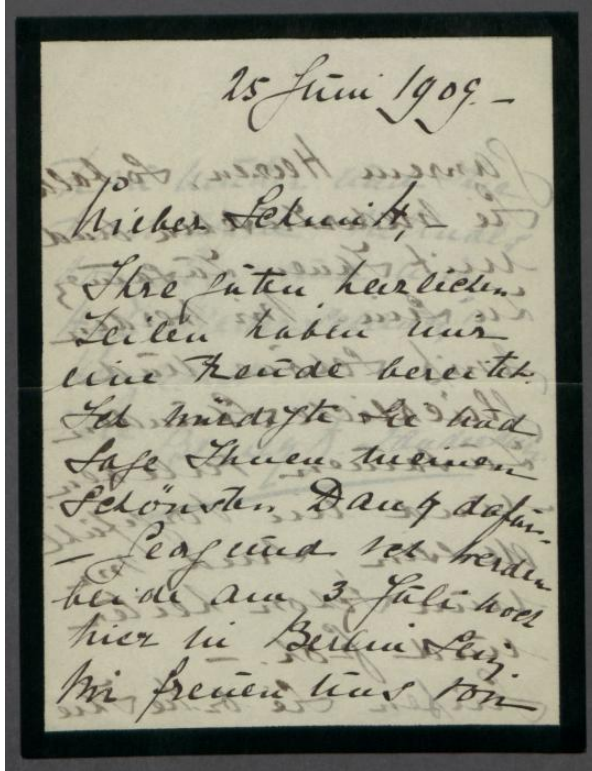 25 Juni 1909. –
Lieber Schmitt, –
Ihre guten herzlichen
Zeilen haben mir
eine Freude bereitet.
Ich würdigte Sie und
sage Ihnen meinen
schönsten Dank dafür.
– und ich werden
beide am 3 Juli noch
hier in Berlin sein.
Wir freuen uns von